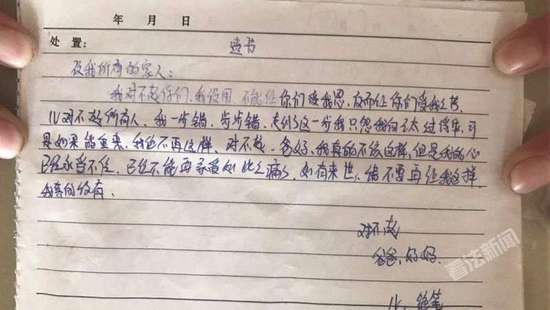 年 月 日
处 置： 遗书
致我所有的家人：
我对不起你们，我没用，不能让你们受我恩，反而让你们受我之苦，
儿对不起所有人，我一步错，步步错，走到这一步我只怨我自己太过懦弱，可
是如果能重来，我也不再这样，对不起，爸妈，我真的不该这样，但是我的心
已经承当不住，已经不能再承受如此之痛，如有来世，绝不要再让我这样
我真的没有。
对不起
爸爸，妈妈
儿 绝笔
看法新闻